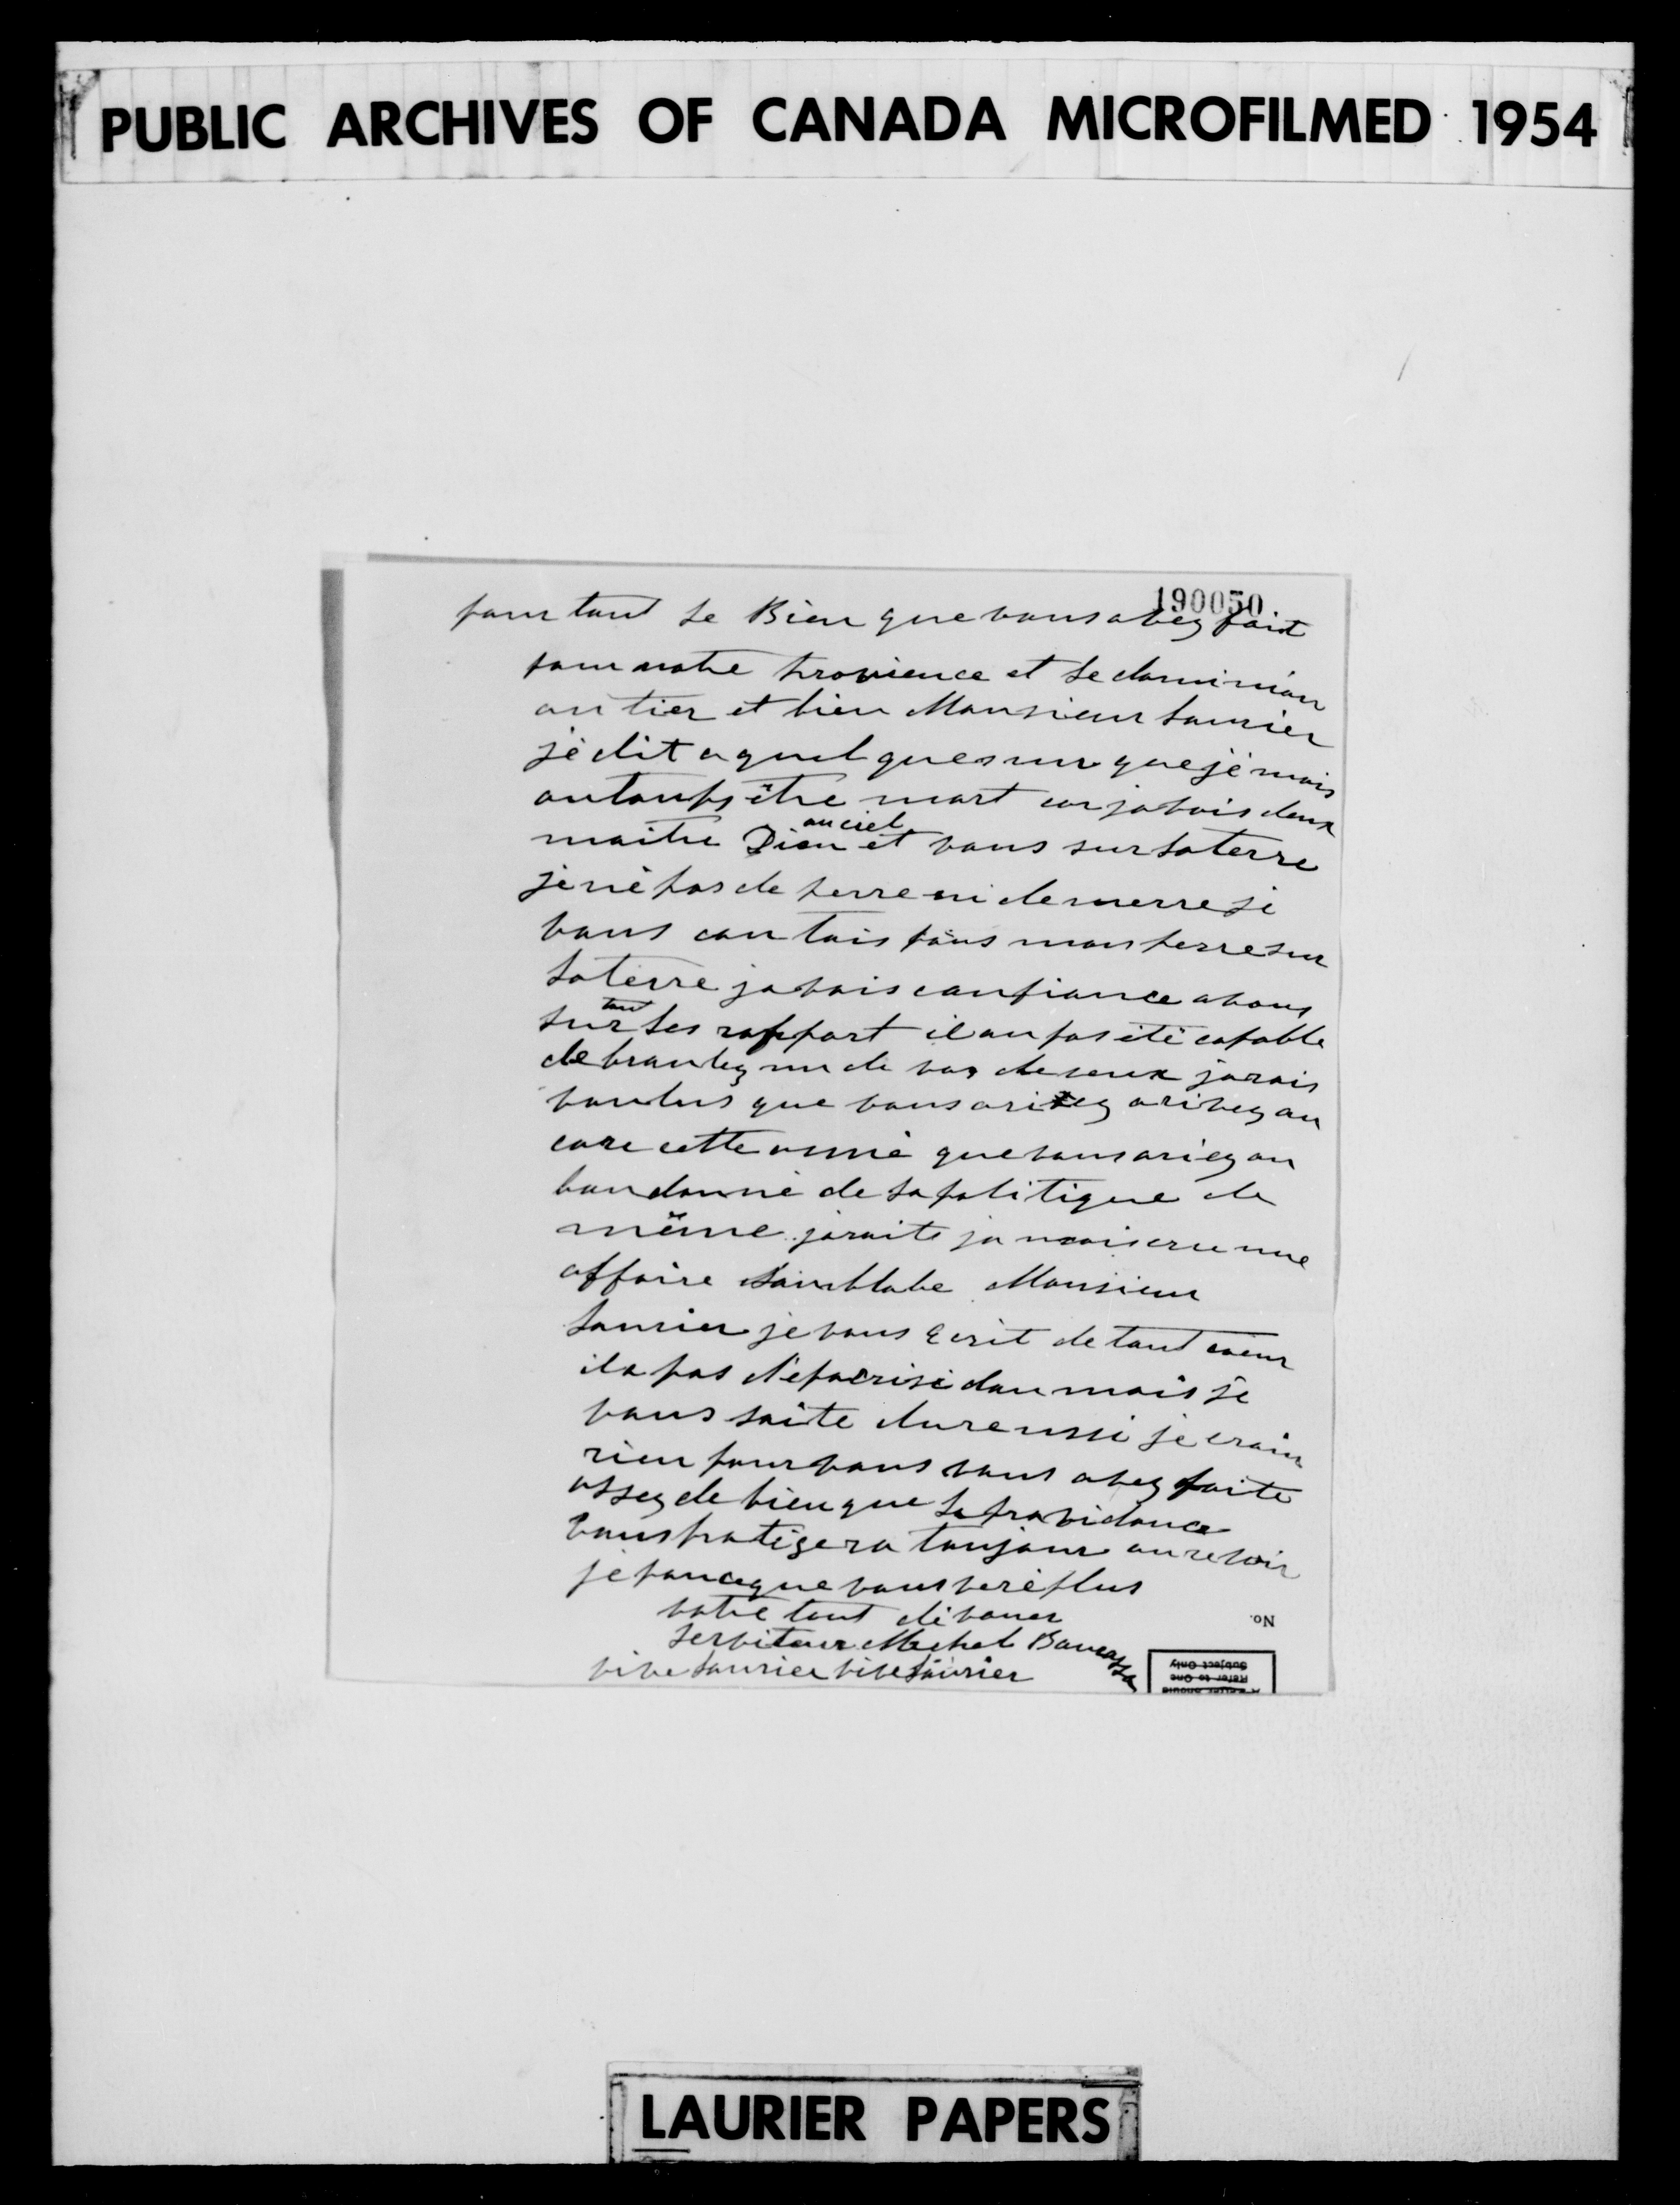 PUBLIC ARCHIVES OF CANADA MICROFILMED 1954
190050
pour tout le Bien que vous avez fait
pour notre Provience et le dominion
antier et bien Monsieur Laurier
jé dit a quel ques un que jé mais
autemps être mort car javais deux
maitre Dieu au ciel et vous sur laterre
jé né pas de perre ni de merre je
vous contais pous mon perre sur
laterre javais confiance a vous
sur tout les rapport il on pas été capable
debranlez un de vos cheveux jarais
voulus que vous arivez arivez an
core cette anné que vous ariez an
bandonné de la politique de
même jaraits jamais cru une
affaire samblabe Monsieur
Laurier je vous Ecrit de tout coeur
ila pas dépocrisi dan mois je
vous saite dureussi je crain
rien pour vous vous avez faite
assez de bien que la providance
vous protigera toujour aurevoir
je pance que vous veré plus
votre tout dévouer
serviteur Michel Bourassa
vive Laurier vive Laurier
No.
A Letter Should
Refer to One
Subject Only
LAURIER PAPERS